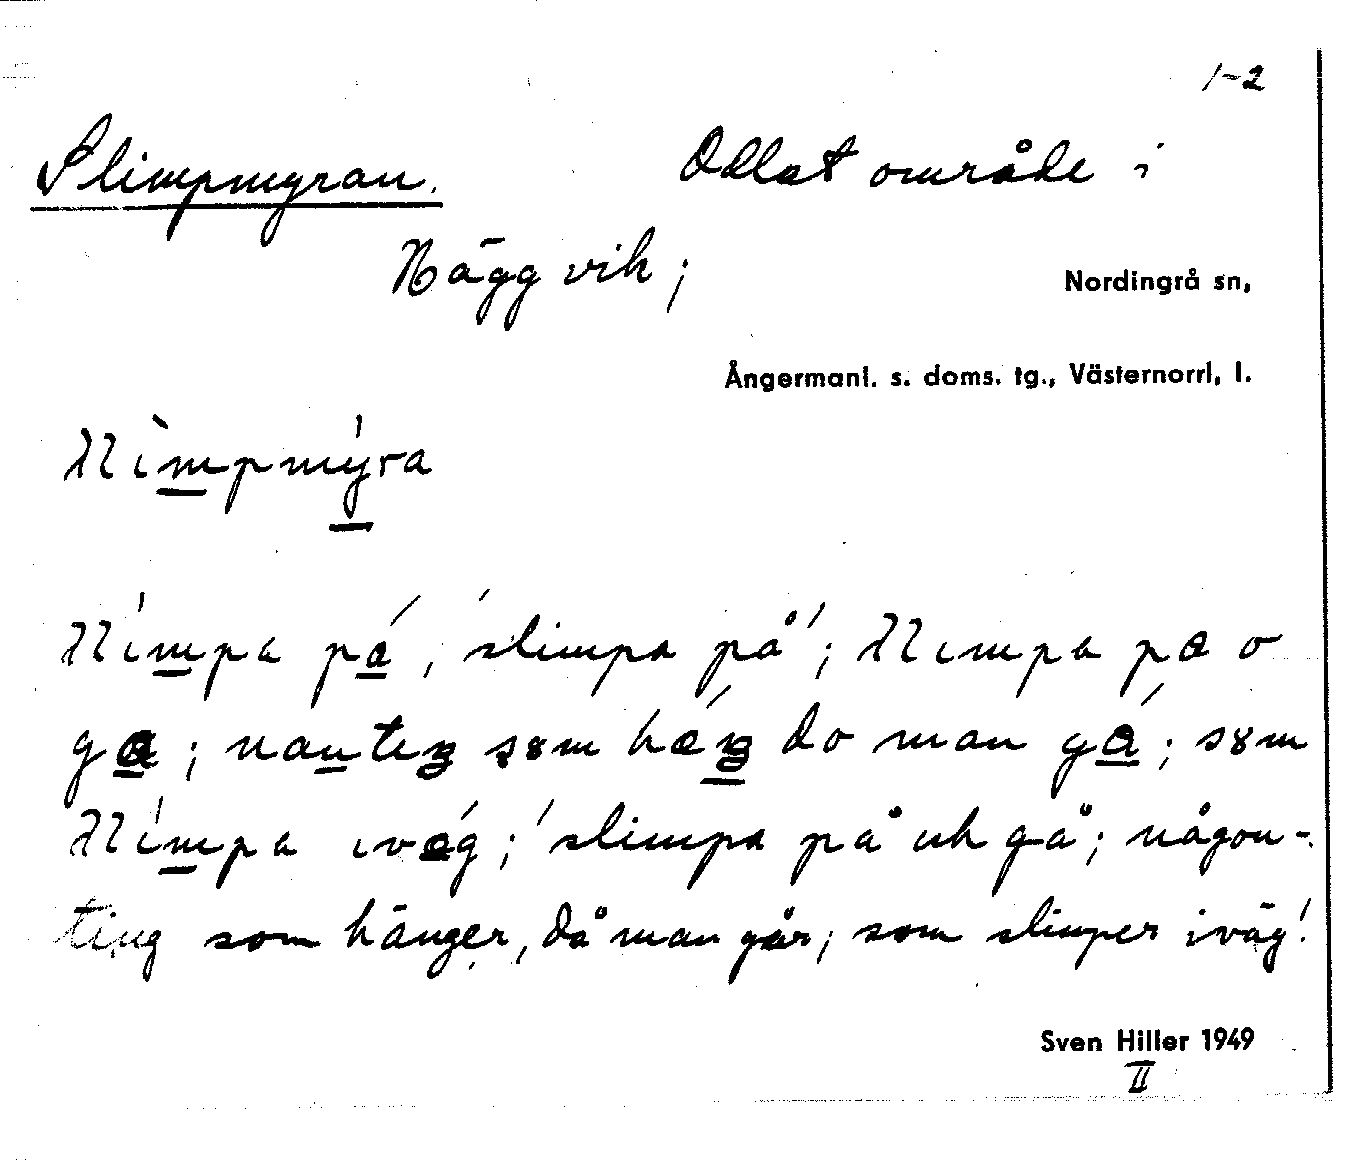 1-2
Slimpmyran. Odlat område i
Näggvik;
Nordingrå sn,
Ångermanl. s. doms. tg., Västernorrl. l.
slimpmyra
slimpa på, 'slimpa på'; slimpa pa o
ga; nanteŋ søm hæŋ do man ga; søm
slimpa ivæg; 'slimpa på uh gå; någon-
ting som hänger, då man går; som slimper iväg!
Sven Hiller 1949
II